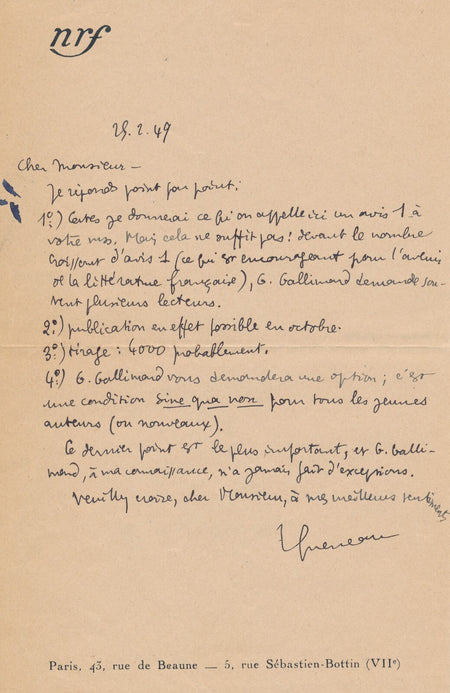 nrf
25.2.49
Cher Monsieur –
Je réponds point par point :
1º) Certes je donnerai ce qu'on appelle ici un avis 1 à
votre ms. Mais cela ne suffit pas ! devant le nombre
croissant d'avis 1 (ce qui est encourageant pour l'avenir
de la littérature française), G. Gallimard demande sou-
vent plusieurs lecteurs.
2º) publication en effet possible en octobre.
3º) tirage : 4000 probablement.
4º) G. Gallimard vous demandera une option ; c'est
une condition sine qua non pour tous les jeunes
auteurs (ou nouveaux).
Ce dernier point est le plus important, et G. Galli-
mard, à ma connaissance, n'a jamais fait d'exceptions.
Veuillez croire, cher Monsieur, à mes meilleurs sentiments
Queneau
Paris, 43, rue de Beaune — 5, rue Sébastien-Bottin (VIIe)